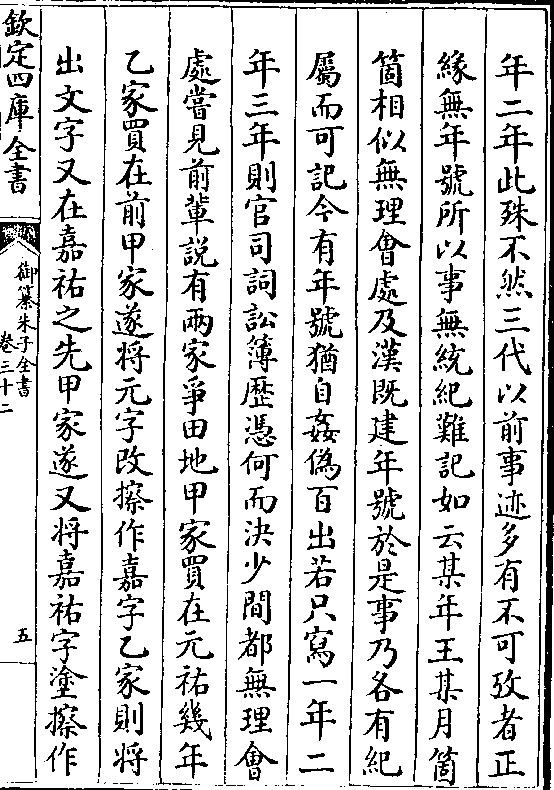 年二年此殊不然三代以前事迹多有不可攷者正
緣無年號所以事無統紀難記如云某年王某月箇
箇相似無理會處及漢既建年號於是事乃各有紀
屬而可記今有年號猶自姦偽百出若只寫一年二
年三年則官司詞訟簿歷憑何而決少間都無理會
處嘗見前輩説有兩家爭田地甲家買在元祐幾年
乙家買在前甲家遂將元字改擦作嘉字乙家則將
出文字又在嘉祐之先甲家遂又將嘉祐字塗擦作
欽定四庫全書
御纂朱子全書
卷三十二
五